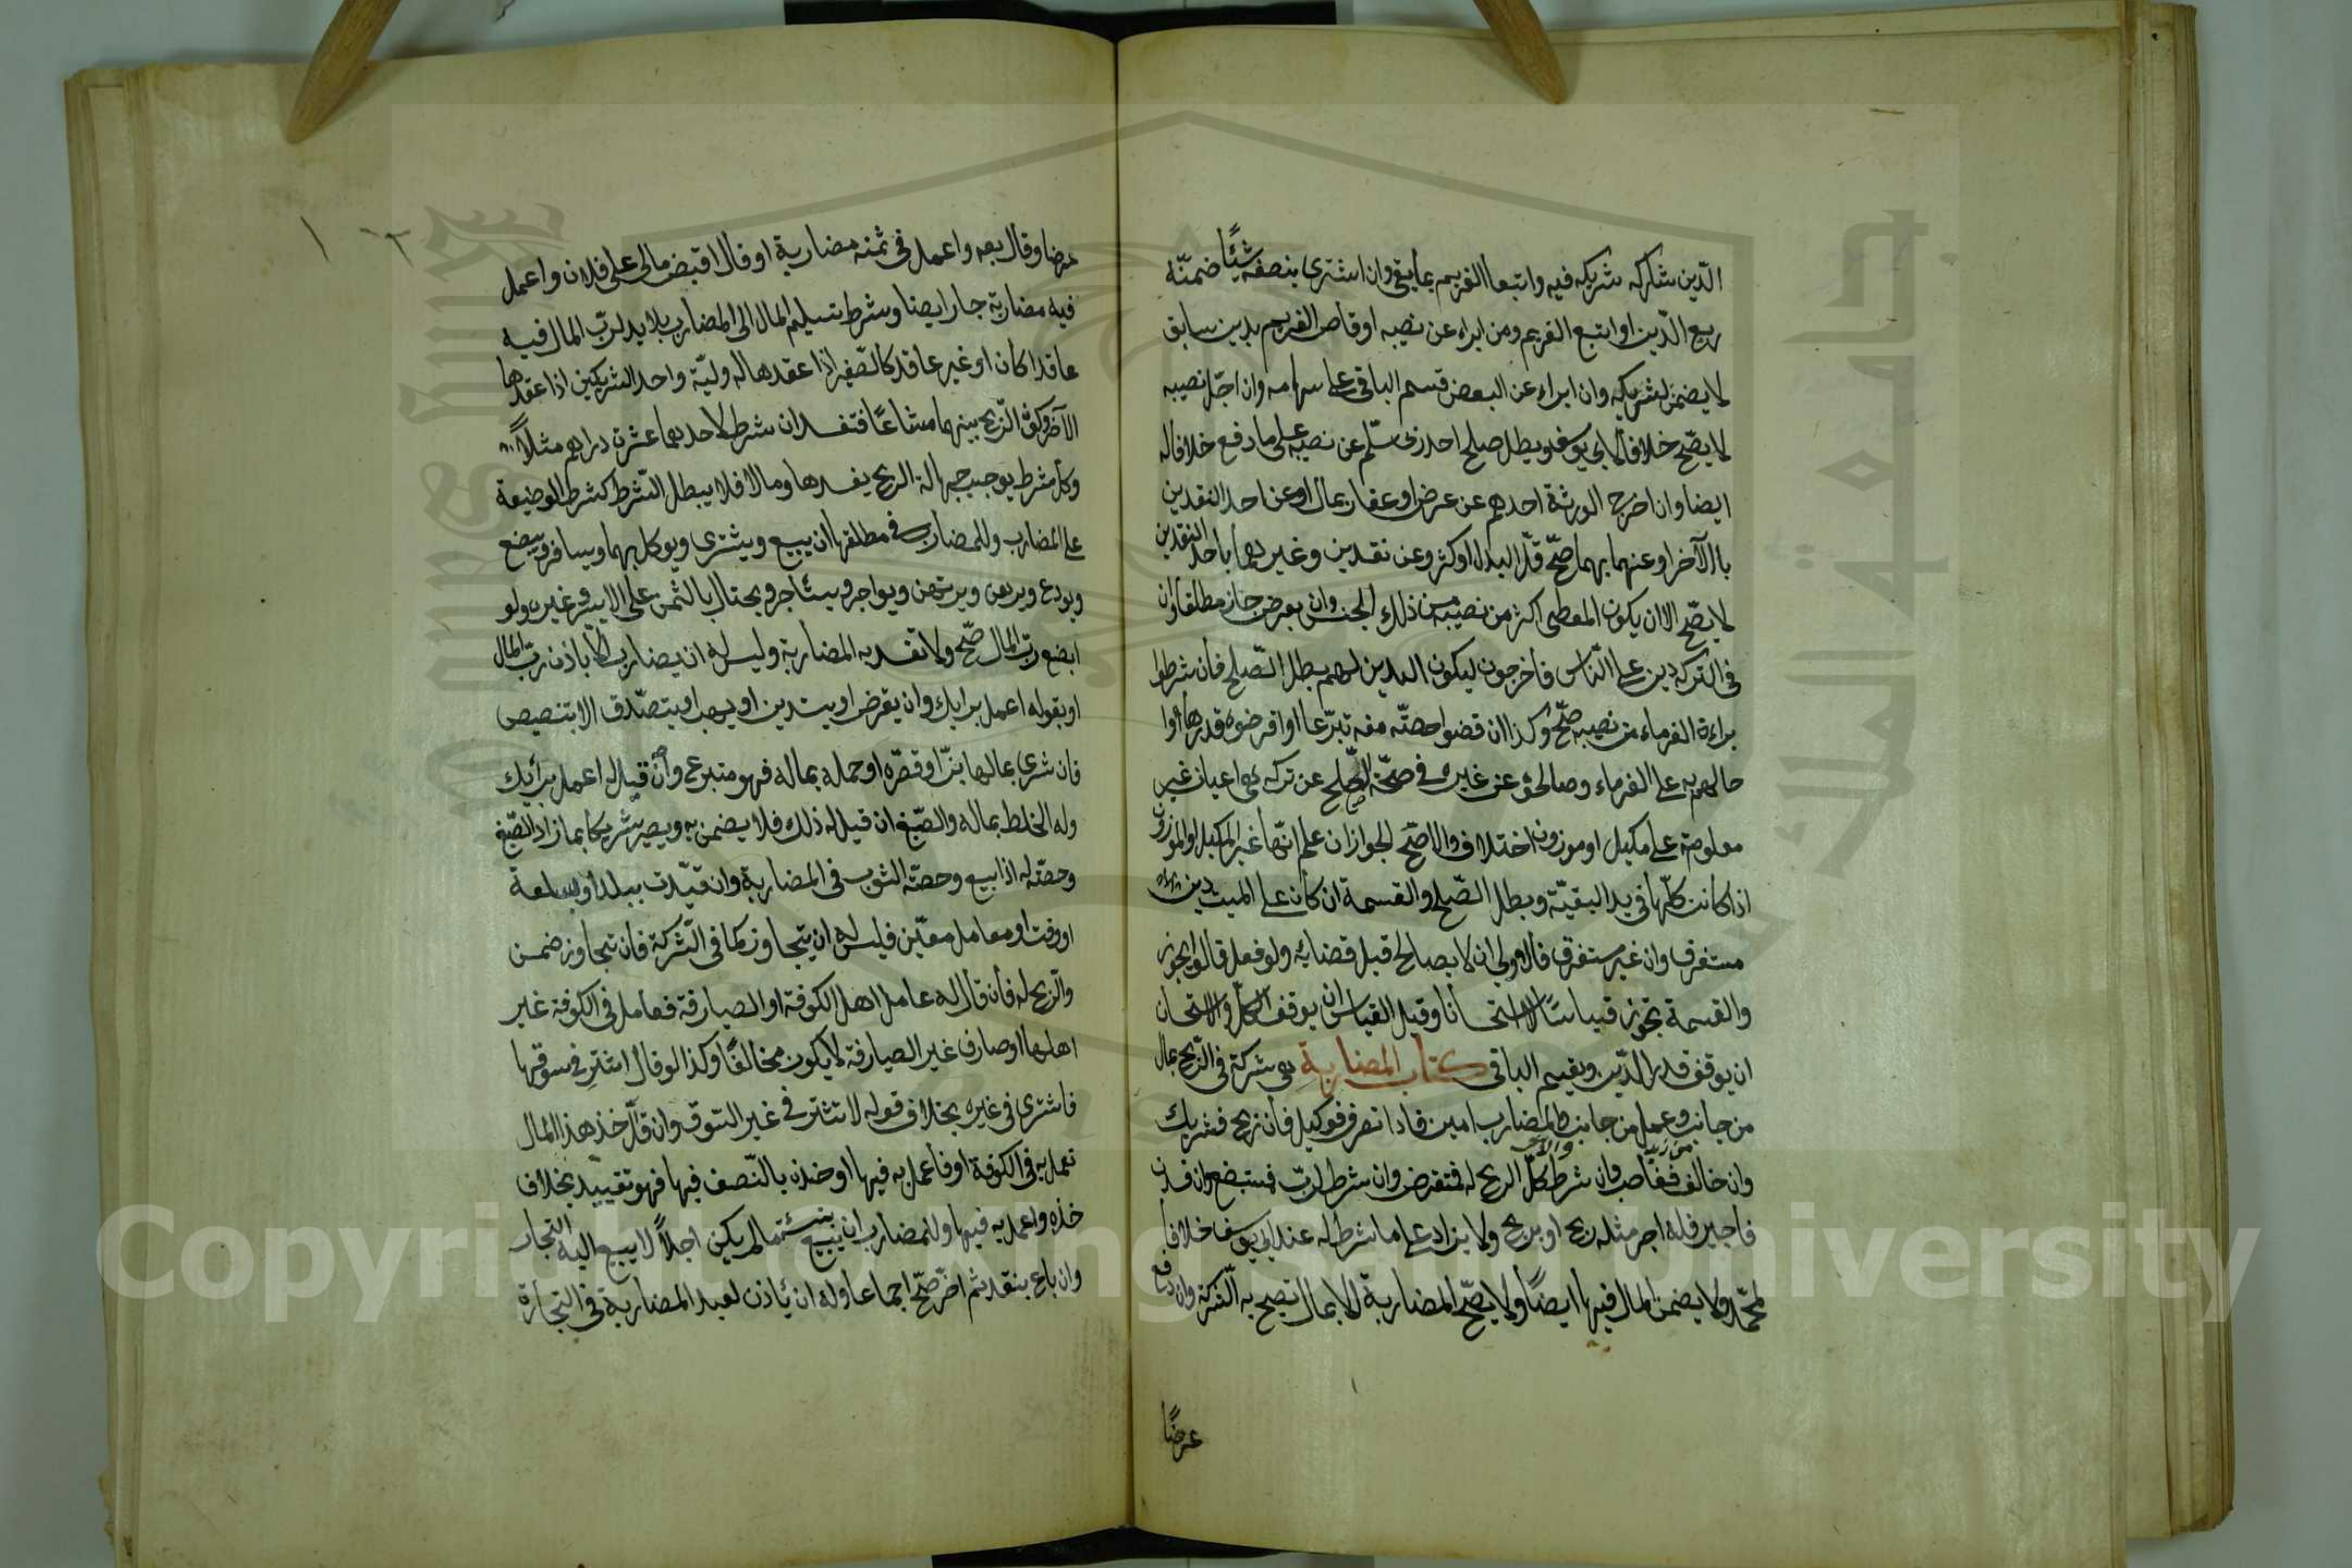 الدّين شاركه شريكه فيه واتبعا الغريم بما بقى وان اشترى بنصفه شيئًا ضمنّه
ربع الدّين او اتبع الغريم ومن ابراء عن نصيبه او قاص الغريم بدين سابق
لا يضمن لشريكه وان ابراء عن البعض قسم الباقى على سهامه وان اجّل نصيبه
لا يصّح خلافا لابى يوسف ويبطل صلح احد ربى سلّم عن نصيبه على ما دفع خلافا له
ايضا وان اخرج الورثة احدهم عن عرض او عقار بمال او عن احد النقدين
بالآخر او عنهما بهما صحّ قلّ البدل او كثر وعن نقدين وغيرهما باحد النقدين
لا يصّح الا ان يكون المعطى اكثر من نصيبه من ذلك الجنس وان بعرض جاز مطلقا وان
فى التركه دين على النّاس فاخرجوه ليكون الدين لهم بطل الصّلح فان شرطوا
براءة الغرماء من نصيبه صحّ وكذا ان قضوا حصتّه منه تبرّعا او اقرضوه قدرها و
حالهم به على الغرماء وصالحوه عن غيره فى صحّة الصّلح عن تركه هى اعيان غير
معلومة على مكيل او موزون اختلاف والاصّح الجواز ان علم انّها غير المكيل او الموزون
اذا كانت كلّها فى يد البقيّة وبطل الصّلح والقسمة ان كان على الميت دين
مستغرق وان غير مستغرق فالاولى ان لا يصالح قبل قضايه ولو فعل قالوا يجوز
والقسمة تجوز قياسًا لا استحسانا وقيل القياس ان يوقف الكلّ والاستحسان
ان يوقف قدر الدّين ويقسم الباقى كتاب المضاربة هى شركة فى الرّبح بمال
من جانب وعمل من جانب والمضارب امين فاذا تصرف فوكيل فان ربح فشريك
وان خالف فغاصب وان شرط كلّ الربح له فمتقرض وان شرط لربّ فمستبضع وان فسدت
فاجير فله اجر مثله ربح او لم يربح ولا يزاد على ما شرط له عند ابى يوسف خلافا
لمحمّد ولا يضمن المال فيها ايضًا ولا يصّح المضاربة الا بمال تصح به الشّركة وان دفع
عرضًا
عرضا وقال بعه واعمل فى ثمنه مضاربة او قال اقبض مالى على فلان واعمل
فيه مضاربة جاز ايضا وشرط تسليم المال الى المضارب بلا يد لربّ المال فيه
عاقدا كان او غير عاقد كالصّغير اذا عقدها له وليّه واحد الشريكين اذا عقدها
الآخر وكون الرّبح بينهما مشاعًا فتفسد ان شرط لاحدهما عشرة دراهم مثلًا
وكل شرط يوجب جهالة الربح يفسدها وما لا فلا ويبطل الشّرط كشرط الوضيعة
على المضارب وللمضارب فى مطلقها ان يبيع ويشترى ويوكل بهما ويسافر ويبضع
ويودع ويرهن ويرتهن ويواجر ويستاجر ويحتال بالثمن على الايسر وغيره ولو
ابضع ربّ المال صحّ ولا تفسد به المضاربة وليس له ان يضارب الّا باذن ربّ المال
او بقوله اعمل برايك وان يقرض او يستدين او يهب او يتصدّق الا بتنصيص
فان شرى بمالها بزّا وقصّره او حمله بماله فهو متبرع وان قيل له اعمل برأيك
وله الخلط بماله والصّبغ ان قيل له ذلك فلا يضمن به ويصير شريكا بما زاد الصّبغ
وحصّته له اذا بيع وحصّة الثوب فى المضاربة وان قيّدت ببلد او سلعة
او وقت او معامل معيّن فليس له ان يتجاوز كما فى الشّركة فان تجاوز ضمن
والرّبح له فان قال له عامل اهل الكوفة او الصيارفة فعامل فى الكوفة غير
اهلها او صارف غير الصيارفة لا يكون مخالفًا وكذا لو قال اشتر فى سوقها
فاشترى فى غيره بخلاف قوله لا تشتر فى غير السّوق وان قال خذ هذا المال
تعمل به فى الكوفة او فاعمل به فيها او خذه بالنّصف فيها فهو تقييد بخلاف
خذه واعمل به فيها وللمضارب ان يبيع بنسئة ما لم يكن اجلًا لا يبيع اليه التجار
وان باع بنقد ثم اخّر صحّ اجماعا وله ان يأذن لعبد المضاربة فى التجارة
Copyright © King Saud University